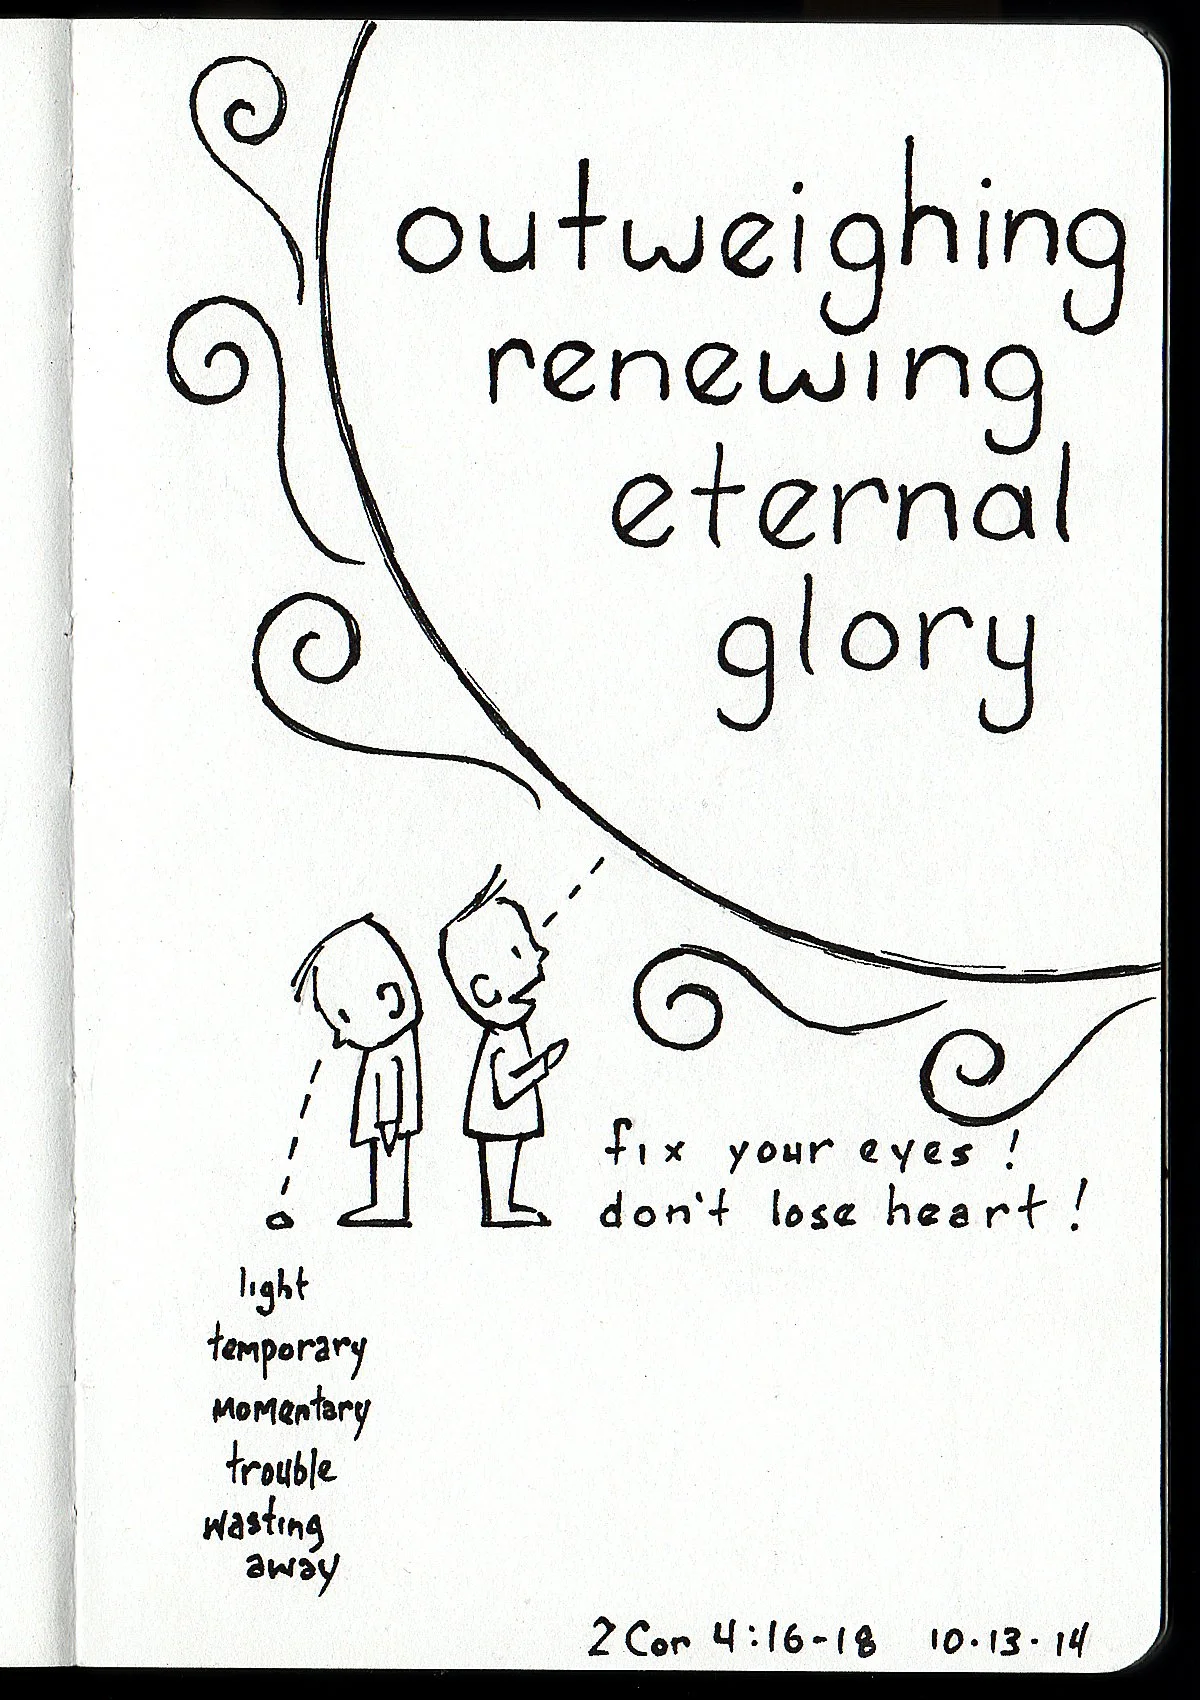 outweighing
renewing
eternal
glory
fix your eyes!
don't lose heart!
light
temporary
momentary
trouble
wasting
away
2 Cor 4:16-18 10.13.14